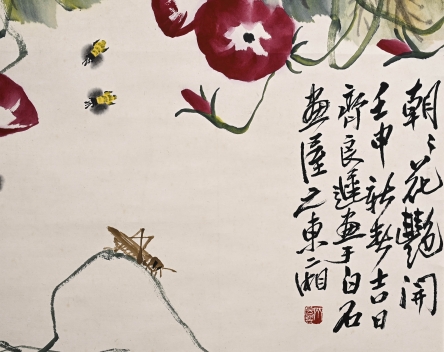 朝〻花艷開
壬申新春吉日
齊良遲畫于白石
畫屋之東廂